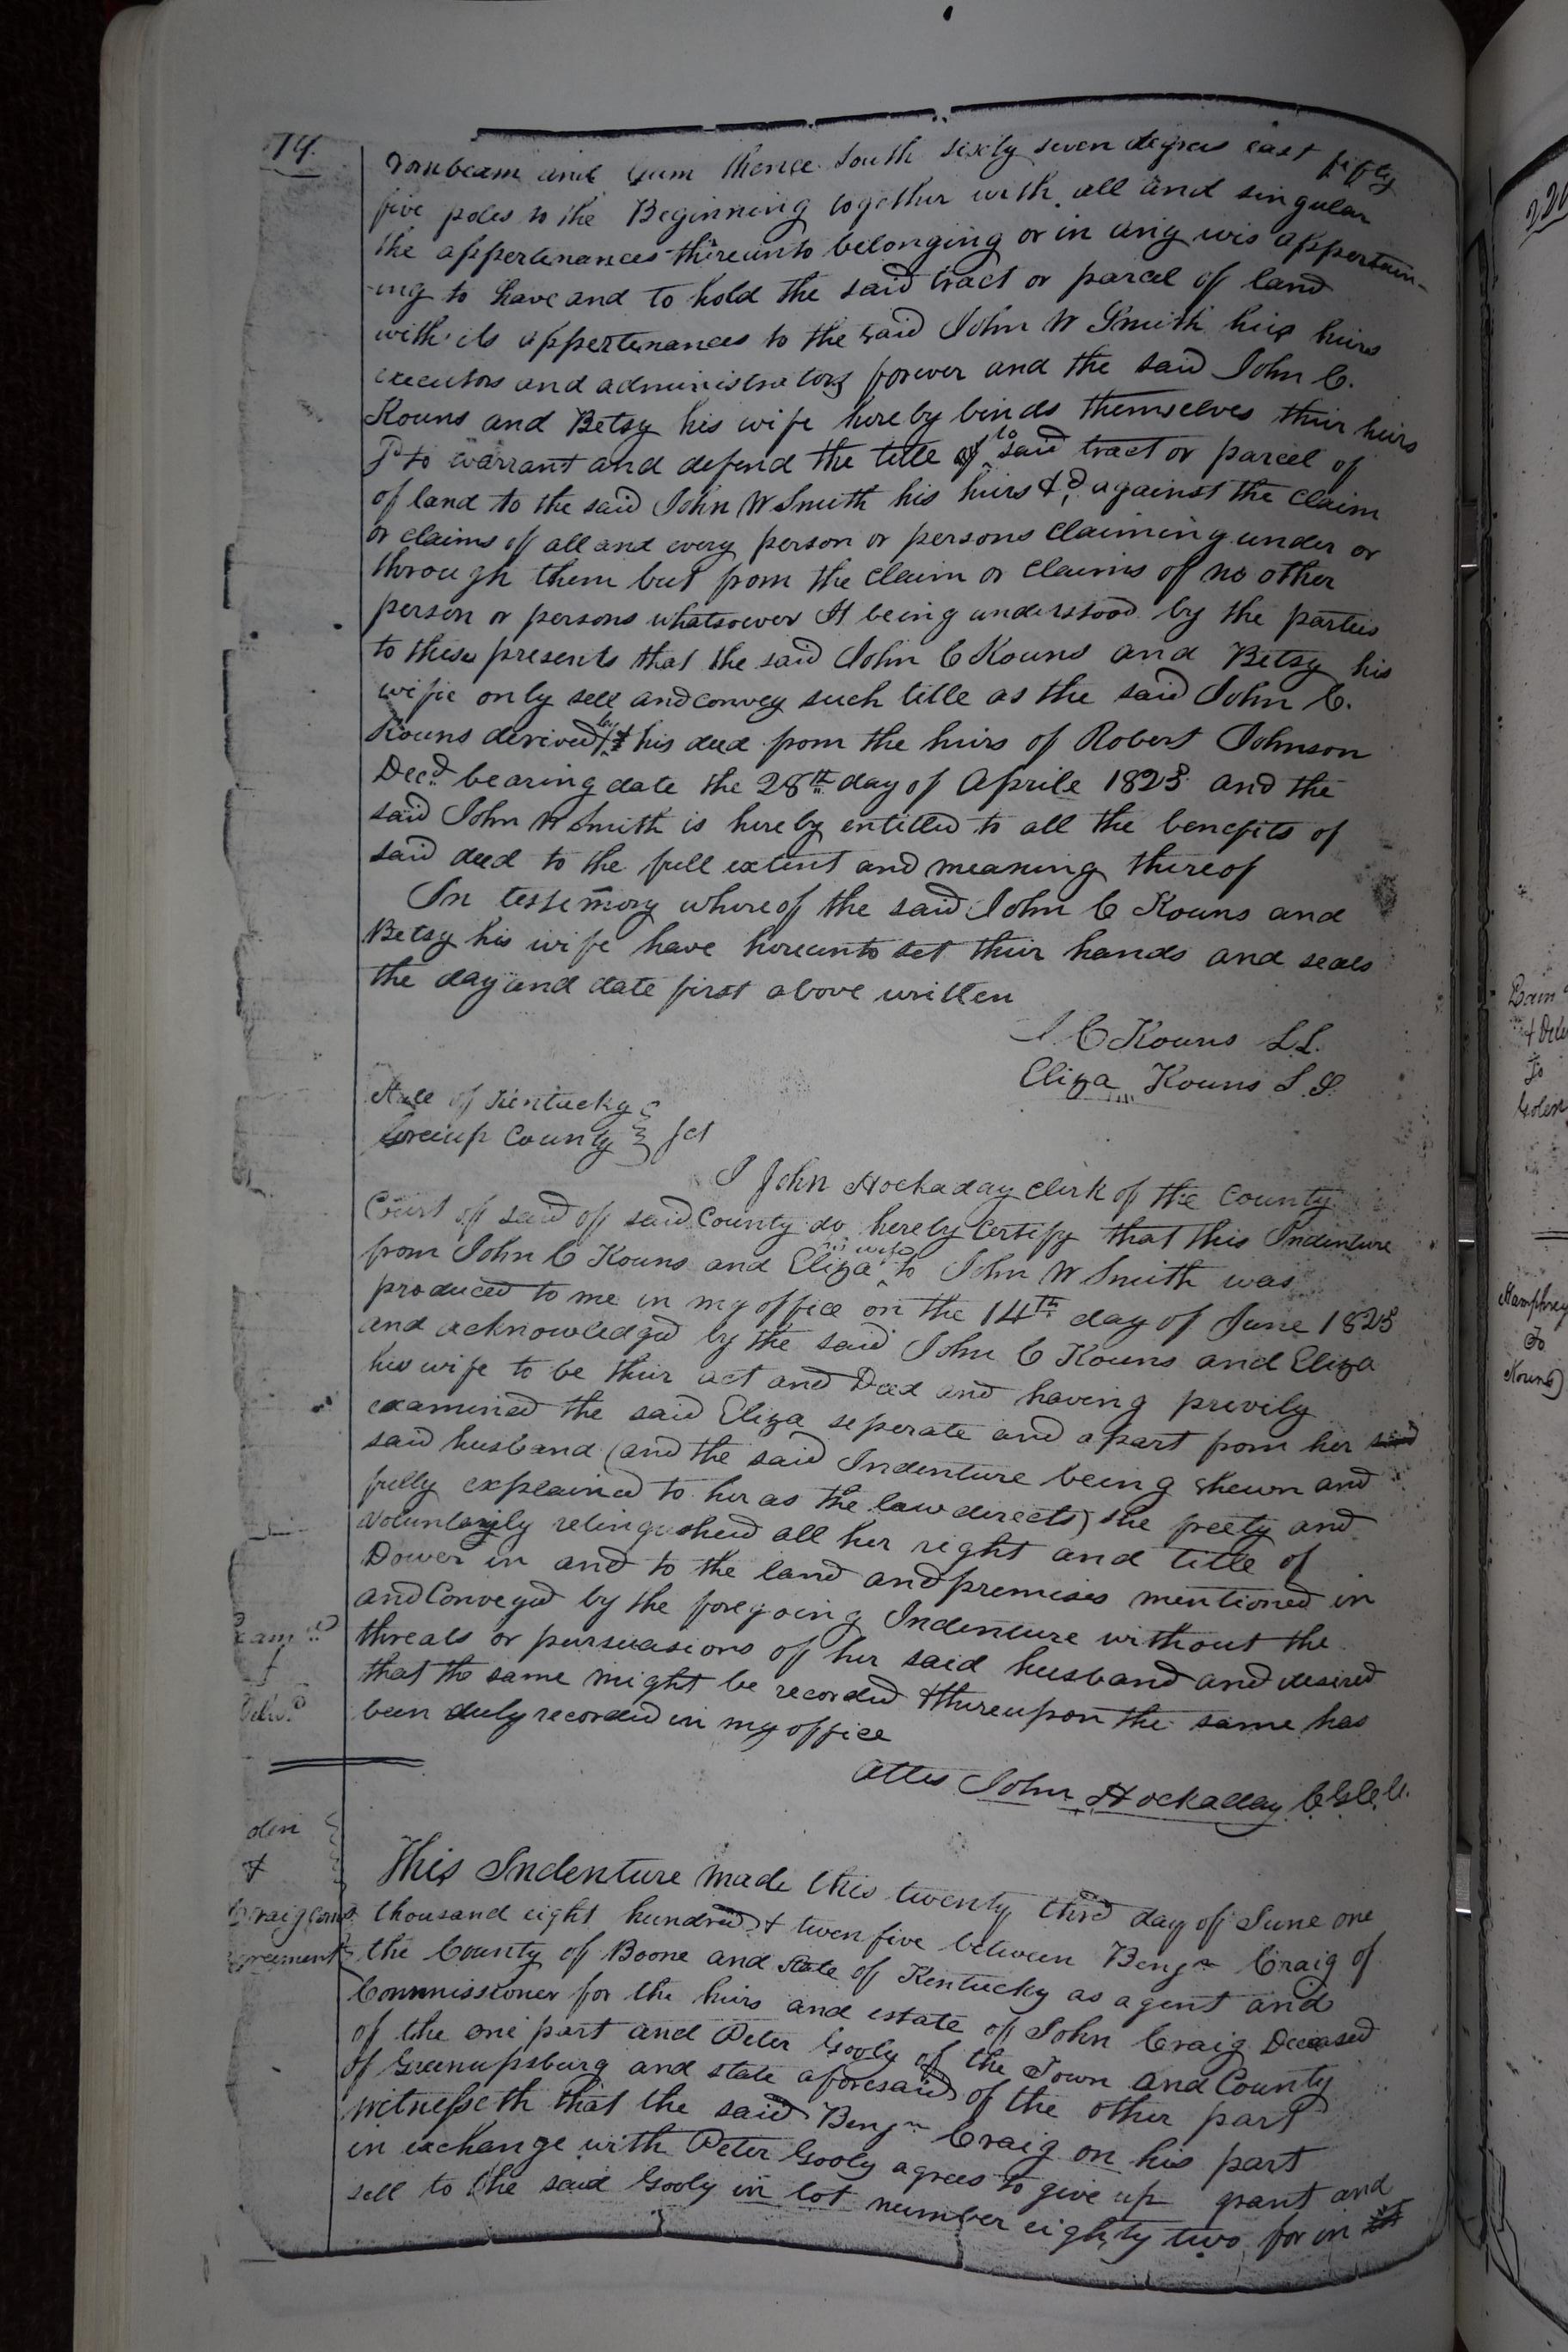 19.
and Gum thence South sixty seven degrees east fifty
five poles to the Beginning together with all and singular
the appertenances thereunto belonging or in any wis appertain-
-ing to have and to hold the said tract or parcel of land
with its appertenances to the said John W Smith his heirs
executors and administrators forever and the said John C.
Kouns and Betsy his wife hereby binds themselves their heirs
to warrant and defend the title to said tract or parcel of
of land to the said John W Smith his heirs &c. against the claim
or claims of all and every person or persons claiming under or
through them but from the claim or claims of no other
person or persons whatsoever It being understood by the parties
to these presents that the said John C Kouns and Betsy his
wife only sell and convey such title as the said John C.
Kouns derived by his deed from the heirs of Robert Johnson
Decd. bearing date the 28th day of Aprile 1825 and the
said John W Smith is hereby entitled to all the benefits of
said deed to the full extent and meaning thereof
In testemony whereof the said John C Kouns and
Betsy his wife have hereunto set their hands and seals
the day and date first above written
J. C Kouns L.S.
Eliza Kouns L.S.
State of Kentucky
Greenup County } Sct
I John Hockaday clerk of the County
Court of said of said County do hereby Certify that this Indenture
from John C Kouns and Eliza his wife to John W Smith was
produced to me in my office on the 14th day of June 1825
and acknowledged by the said John C Kouns and Eliza
his wife to be their act and Deed and having privily
examined the said Eliza seperate and apart from her said
said husband (and the said Indenture being shewn and
fully explained to her as the law directs) she freely and
voluntarily relinquished all her right and title of
Dower in and to the land and premises mentioned in
and Conveyed by the foregoing Indenture without the
threats or pursuasions of her said husband and desired
that the same might be recorded & thereupon the same has
been duly recorded in my office
Attes John Hockaday C.G.C.C.
This Indenture made this twenty third day of June one
thousand eight hundred & twen five between Benjn Craig of
the County of Boone and State of Kentucky as agent and
Commissioner for the heirs and estate of John Craig Deceased
of the one part and Peter Gooly of the Town and County
of Greenupsburg and state aforesaid of the other part
witnesseth that the said Benjn Craig on his part
in exchange with Peter Gooly agrees to give up grant and
sell to the said Gooly in lot number eighty two for in